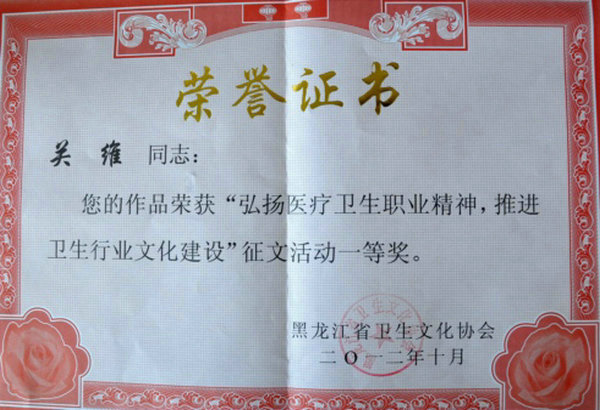 荣誉证书
关维 同志：
您的作品荣获“弘扬医疗卫生职业精神，推进
卫生行业文化建设”征文活动一等奖。
黑龙江省卫生文化协会
二〇一二年十月